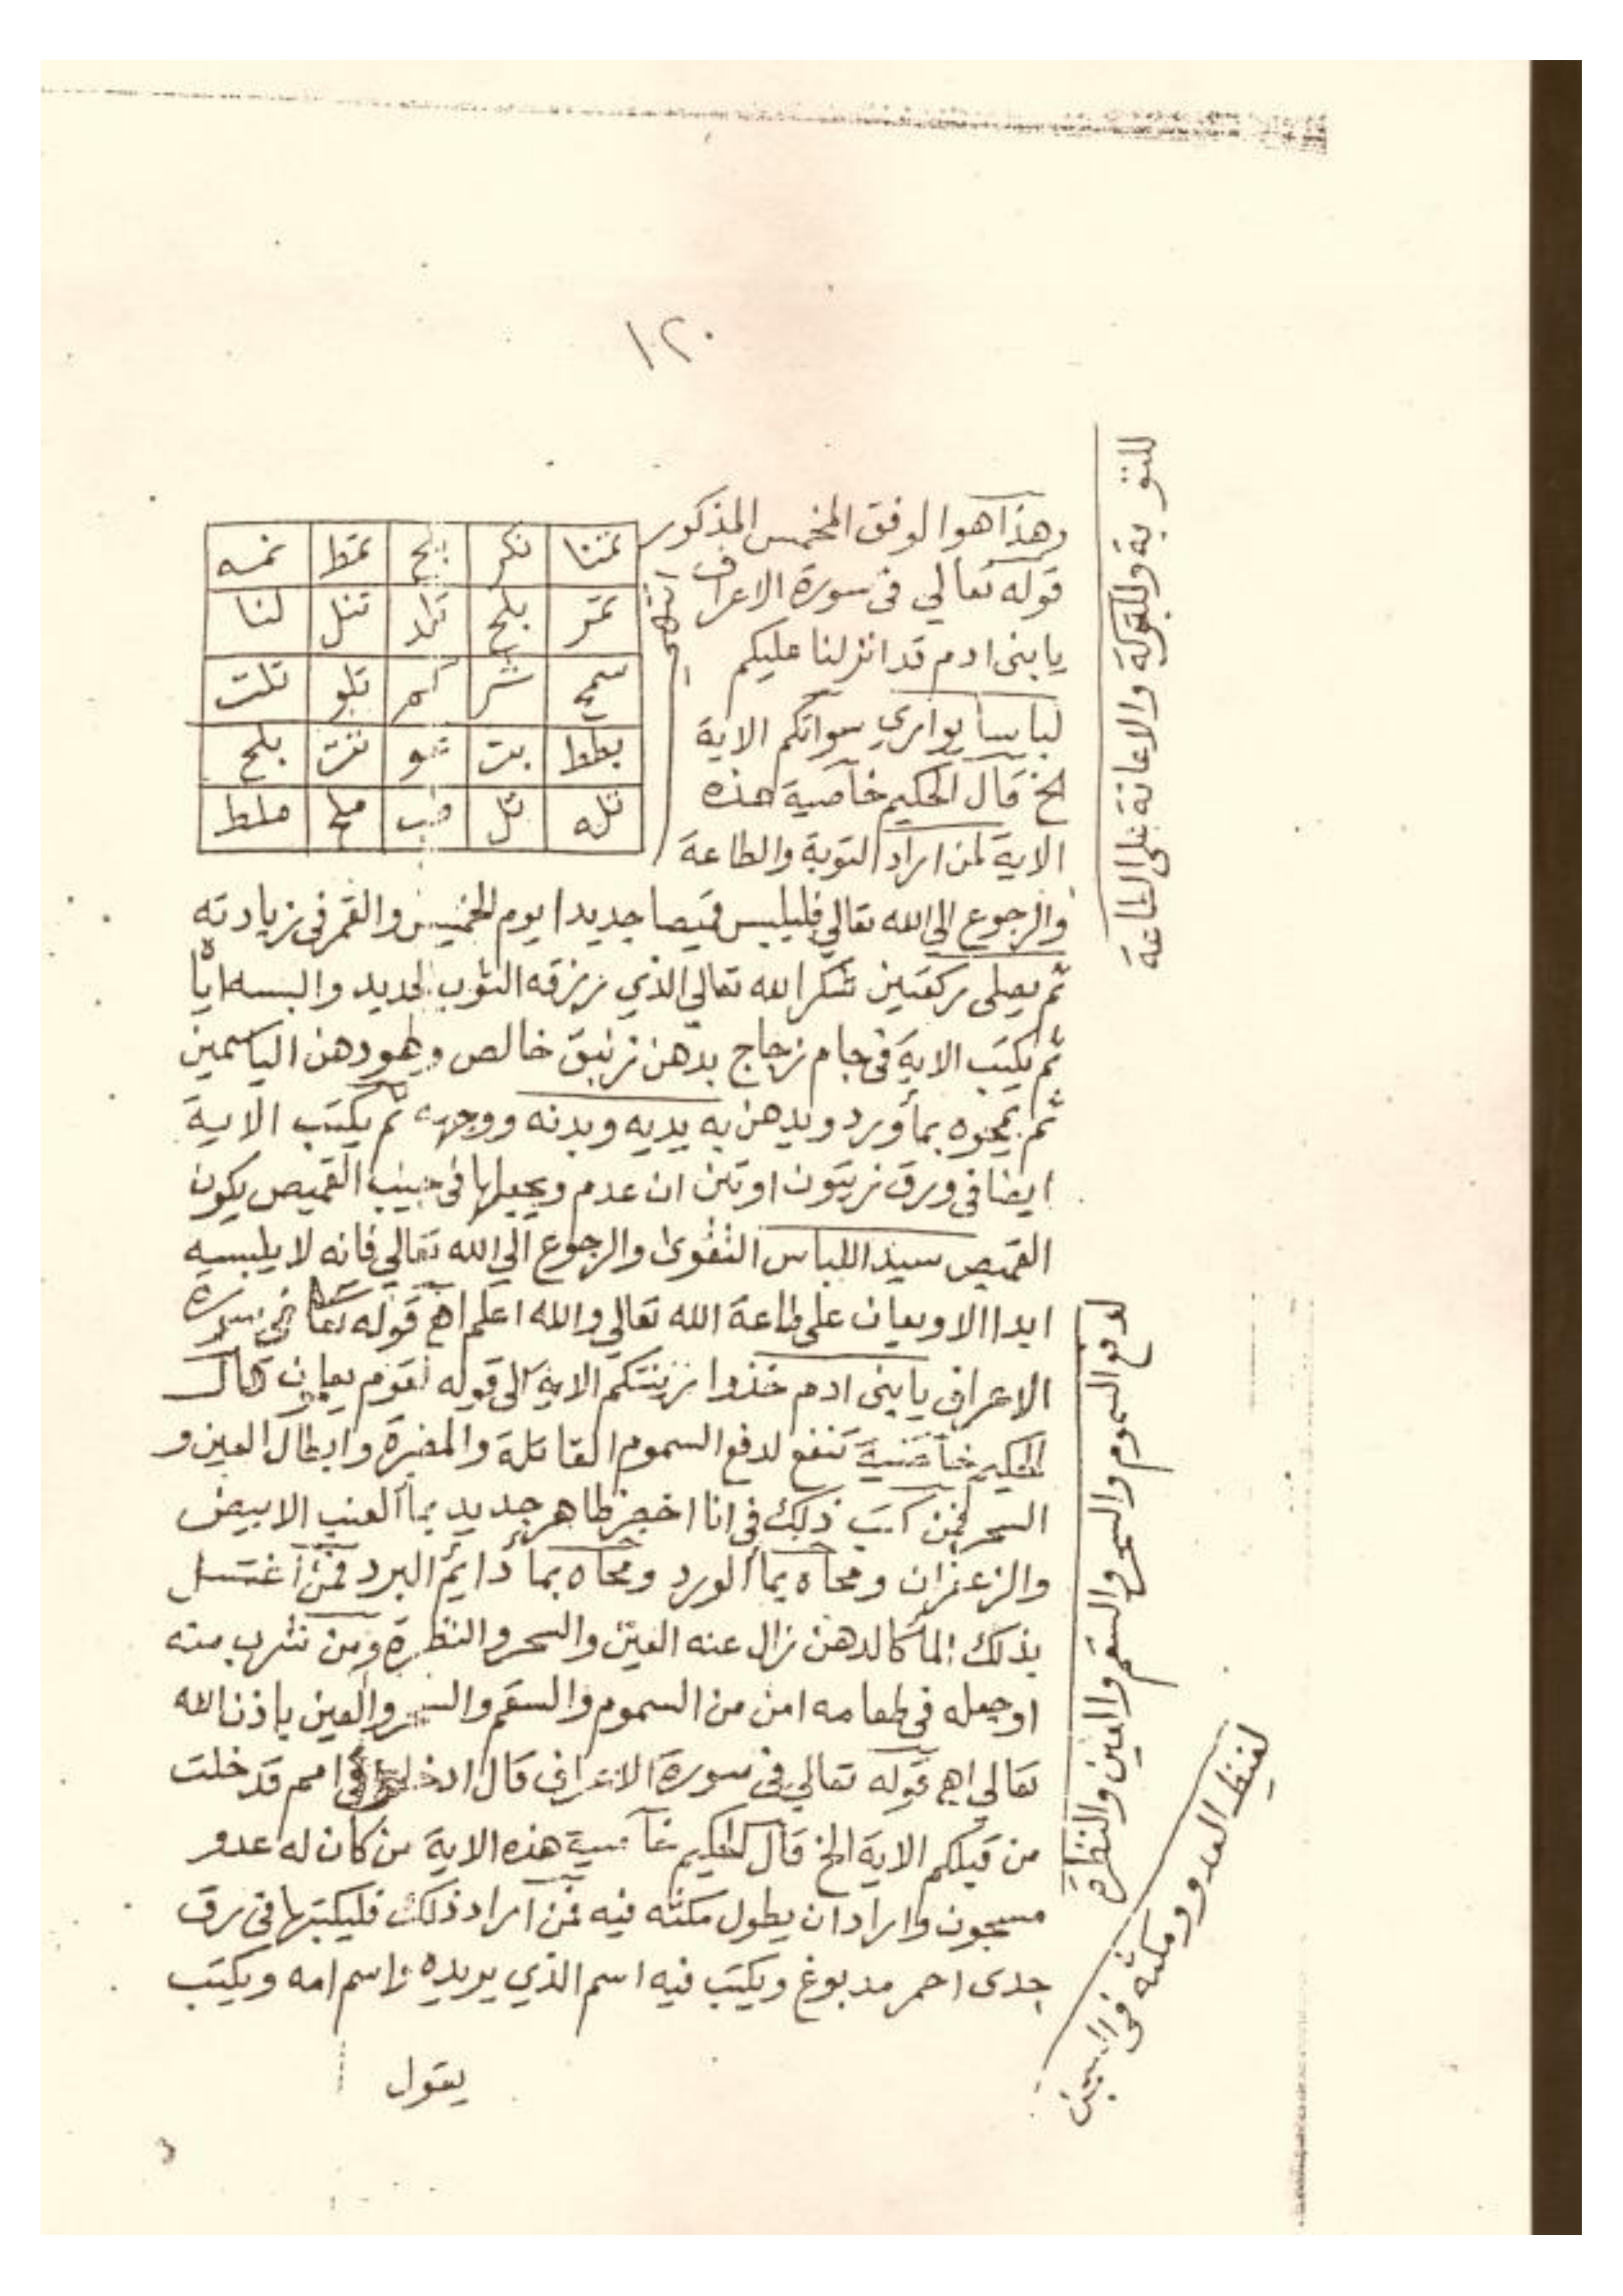 ١٢٠
وهذا هو الوفق المخمس المذكور
قوله تعالي فى سورة الاعراف
يا بنى ادم قد انزلنا عليكم
لباسا يواري سواتكم الاية
الخ قال الحكيم خاصية هذه
الاية لمن اراد التوبة والطاعة
نكر
بلح
تنل
لنا
تلو
تلت
بطط
بت
بلح
تله
تل
ملط
والرجوع الى الله تعالي فليلبس قميصا جديدا يوم الخميس والقمر فى زيادته
ثم يصلى ركعتين شكرا لله تعالي الذي رزقه الثوب الجديد والبسه اياه
ثم يكتب الاية فى جام زجاج بدهن زنبق خالص وهو دهن الياسمين
ثم يمحوه بمأ ورد ويدهن به يديه وبدنه ووجهه ثم يكتب الاية
ايضا فى ورق زيتون او تين ان عدم ويجعلها فى جيب القميص يكون
القميص سيد اللباس التقوى والرجوع الي الله تعالي فانه لا يلبسه
ابدا الا ويعان على طاعة الله تعالي والله اعلم اهـ قوله تعا فى سورة
الاعراف يا بنى ادم خذوا زينتكم الاية الى قوله لقوم يعلمون قال
الحكيم خاصية تنفع لدفع السموم القاتلة والمضرة وابطال العين و
السحر فمن كتب ذلك فى انا اخضر طاهر جديد بمأ العنب الابيض
والزعفران ومحاه بمأ الورد ومحاه بمأ دايم البرد فمن اغتسل
بذلك المأ كالدهن زال عنه العين والسحر والنظرة ومن شرب منه
او جعله فى طعامه امن من السموم والسقم والسحر والعين باذن الله
تعالي اهـ قوله تعالي فى سورة الاعراف قال ادخلوا فى امم قد خلت
من قبلكم الاية الخ قال الحكيم خاصية هذه الاية من كان له عدو
مسجون واراد ان يطول مكثه فيه فمن اراد ذلك فليكتبها فى رق
جدى احمر مدبوغ ويكتب فيه اسم الذي يريده واسم امه ويكتب
يقول
للتوبة وللتوكة والاعانة على الطاعة
لدفع السموم والسحر والسقم والعين والنظرة
لغيظ العدو ومكثه فى السجن